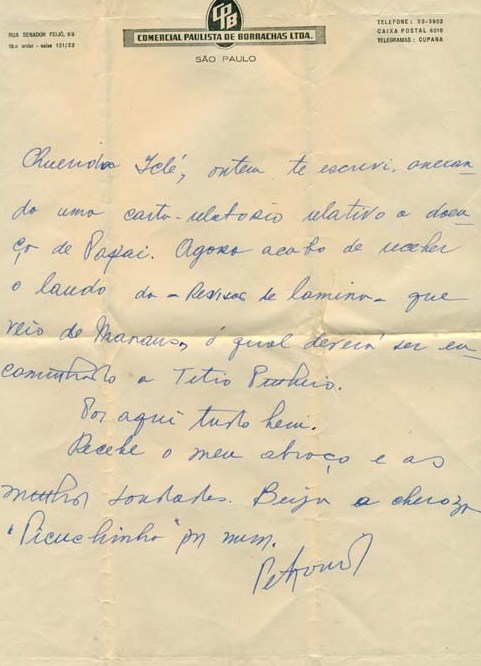 CPB
COMERCIAL PAULISTA DE BORRACHAS LTDA.
SÃO PAULO
RUA SENADOR FEIJÓ, 69
TELEFONE: 33-3902
CAIXA POSTAL 6016
TELEGRAMAS: CUPANA
Querida Iclé, ontem te escrevi, anexan-
do uma carta-relatorio relativo a doen-
ça de Papai. Agora acabo de receber
o laudo da - Revisão de lamina - que
veio de Manaus, o qual deverá ser en-
caminhado a Titio Pinheiro.
Por aqui tudo bem.
Recebe o meu abraço e as
minhas saudades. Beija a cheirosa
"Picuchinha" por mim.